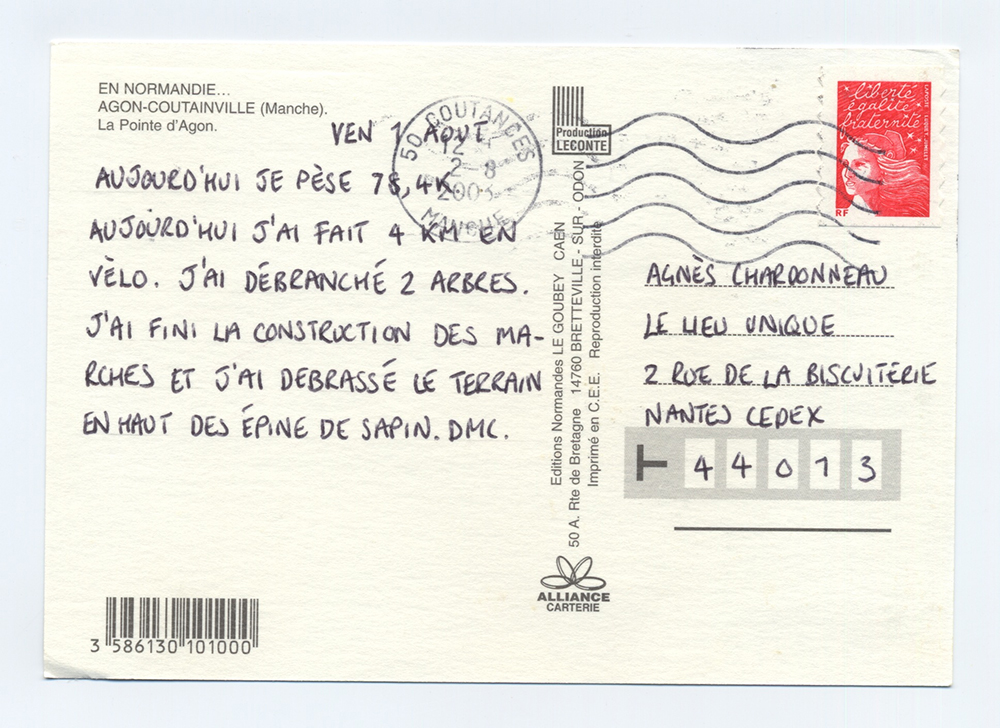 EN NORMANDIE...
AGON-COUTAINVILLE (Manche).
La Pointe d'Agon.
VEN 1 AOUT
AUJOURD'HUI JE PÈSE 78,4K
AUJOURD'HUI J'AI FAIT 4 KM EN
VÈLO. J'AI DÉBRANCHÉ 2 ARBRES.
J'AI FINI LA CONSTRUCTION DES MA-
RCHES ET J'AI DEBRASSÉ LE TERRAIN
EN HAUT DES ÉPINE DE SAPIN. DMC.
50 COUTANCES
12 H
2-8
2003
MANCHE
Production
LECONTE
liberté
égalité
fraternité
RF
LA POSTE
Editions Normandes LE GOUBEY CAEN
50 A. Rte de Bretagne 14760 BRETTEVILLE - SUR - ODON
Imprimé en C.E.E. Reproduction interdite
AGNÈS CHARDONNEAU
LE LIEU UNIQUE
2 RUE DE LA BISCUITERIE
NANTES CEDEX
T 44013
ALLIANCE
CARTERIE
3 586130 101000